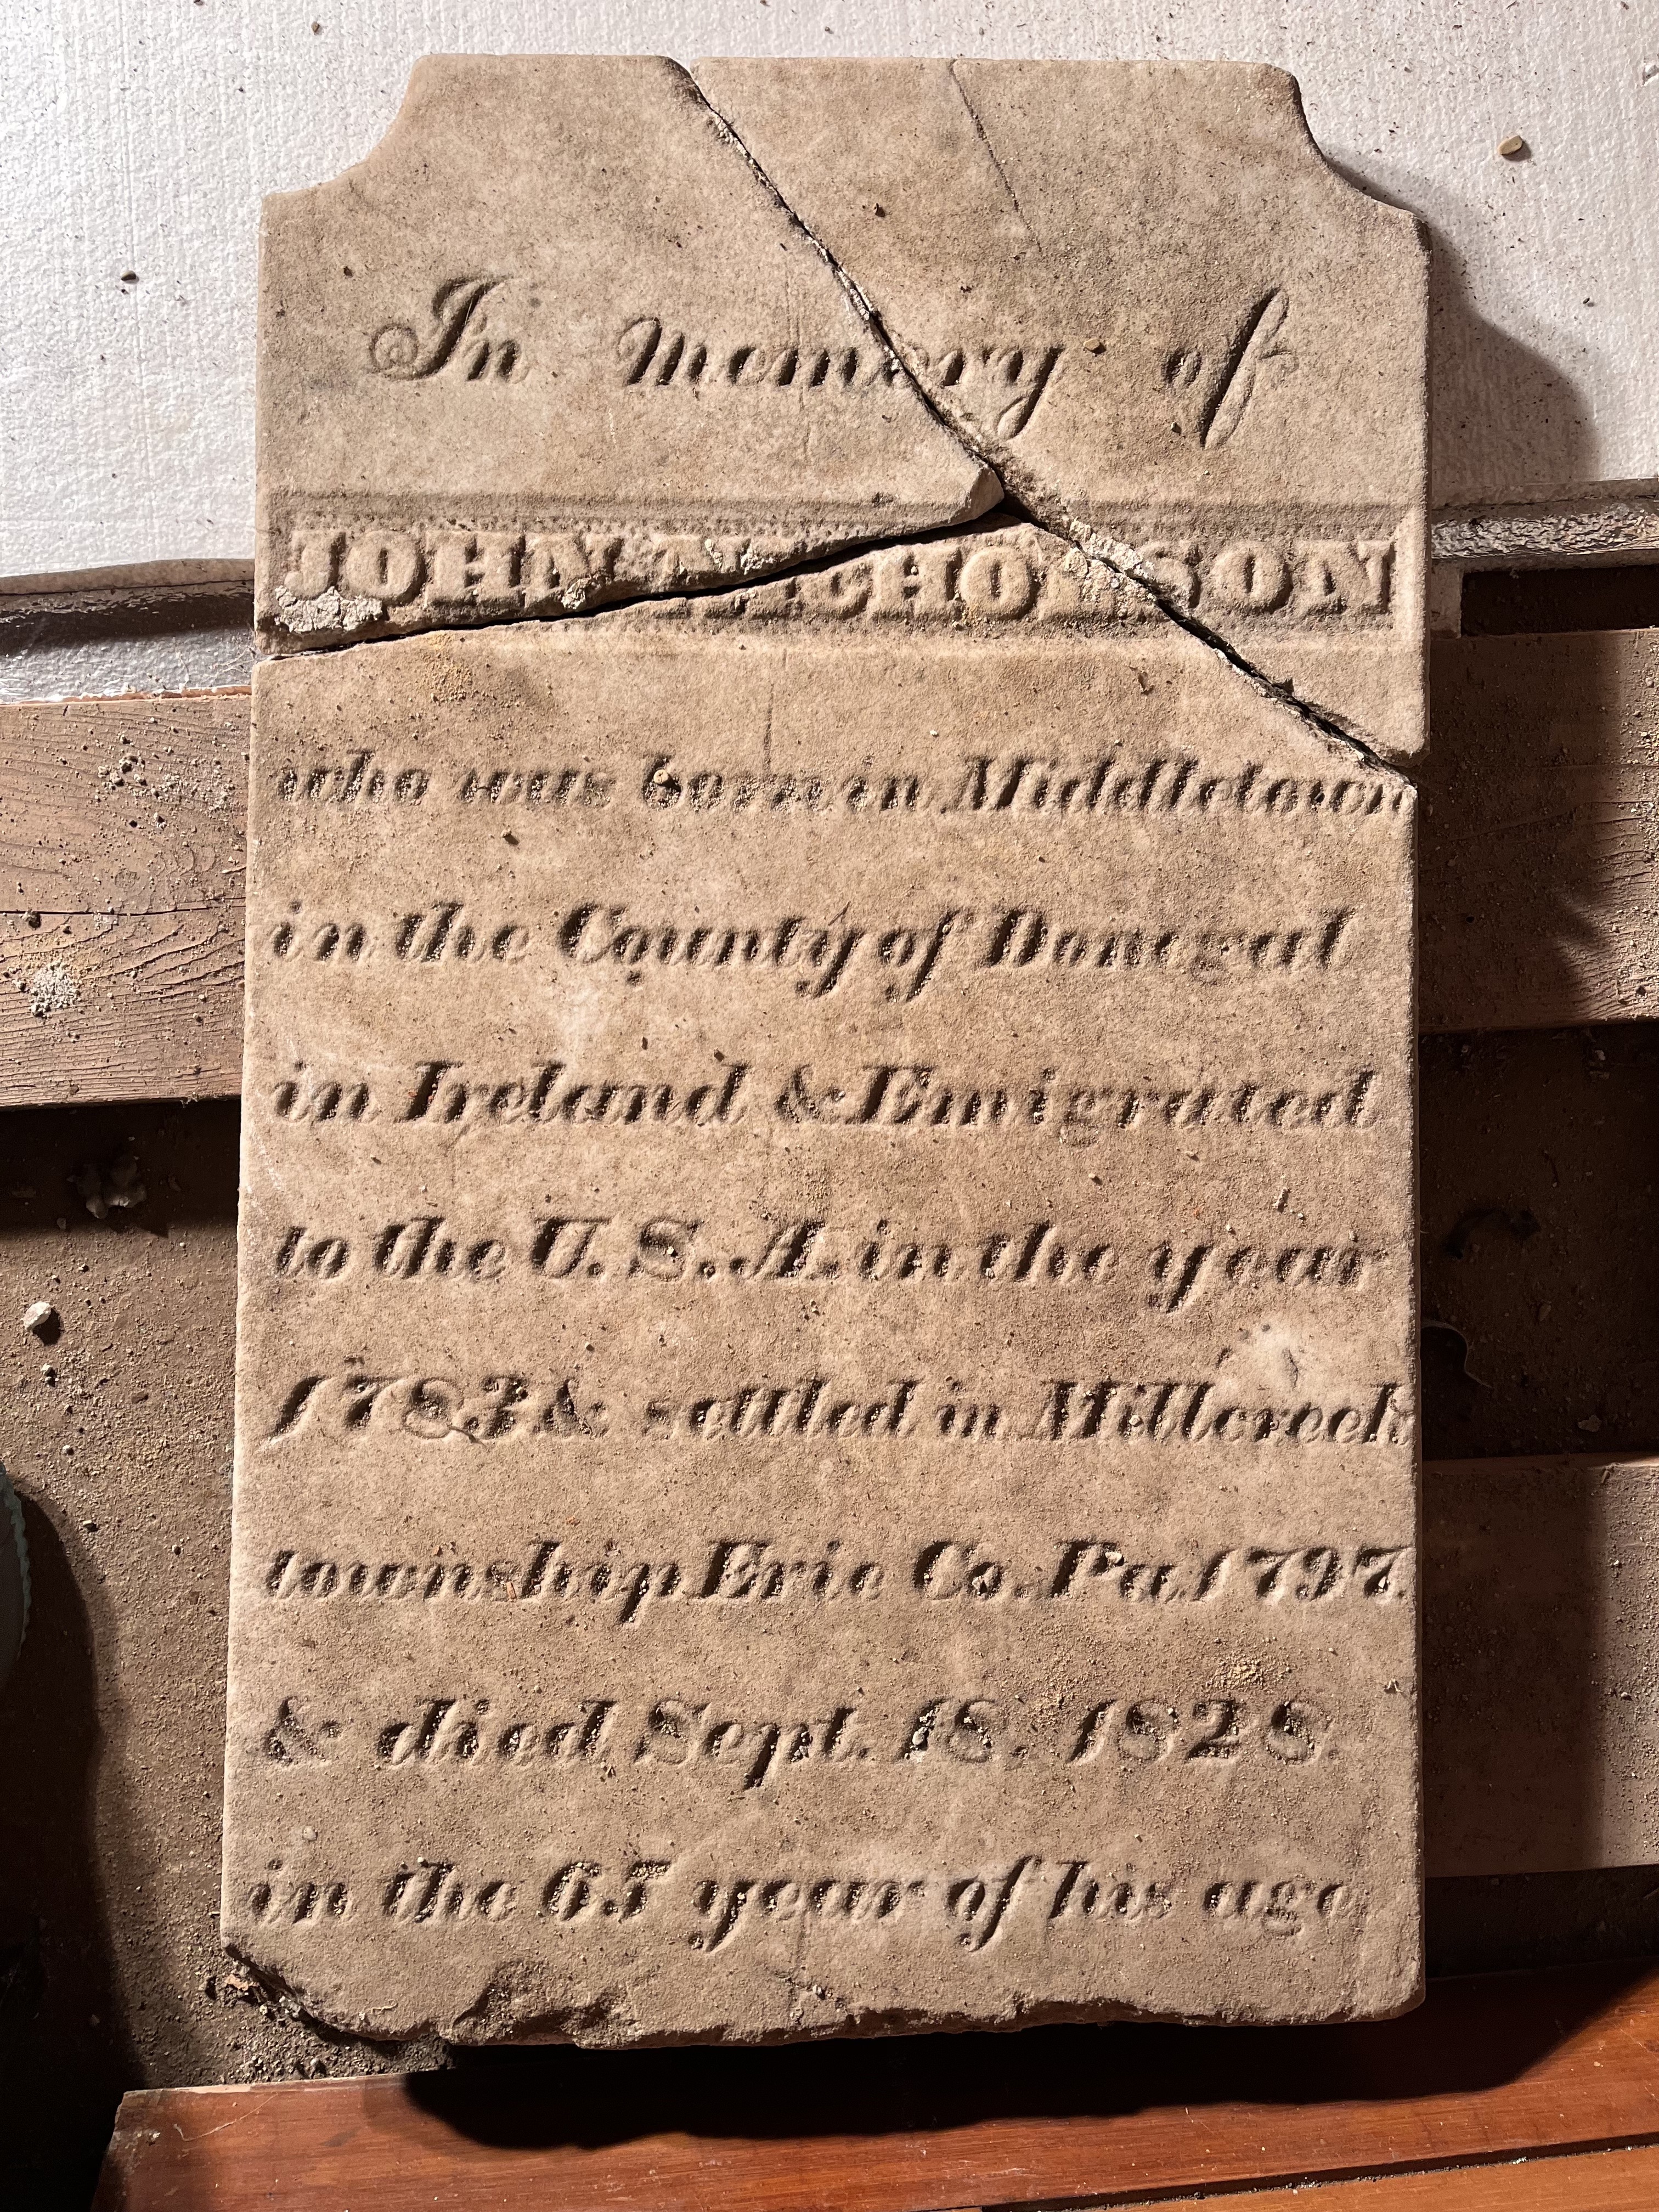 In memory of
JOHN NICHOLSON
who was born in Middletown
in the County of Donegal
in Ireland & Emigrated
to the U.S.A. in the year
1783 & settled in Millcreek
township Erie Co. Pa. 1797.
& died Sept. 18. 1828.
in the 65 year of his age